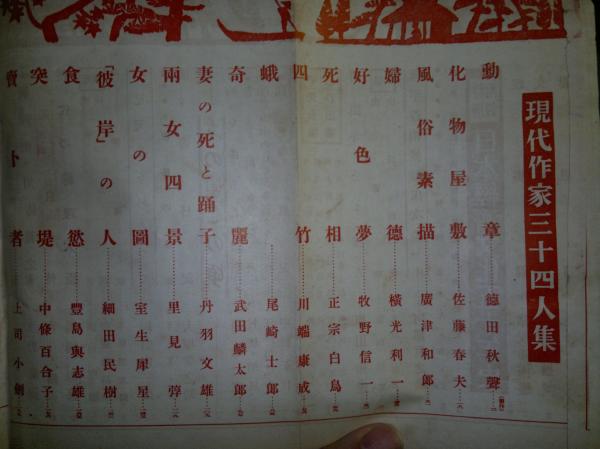 現代作家三十四人集
動章……德田秋聲
化物屋敷……佐藤春夫
風俗素描……廣津和郎
婦德……橫光利一
好色夢……牧野信一
死相……正宗白鳥
四竹……川端康成
蛾……尾崎士郎
奇麗……武田麟太郎
妻の死と踊子……丹羽文雄
兩女四景……里見弴
女の圖……室生犀星
「彼岸」の人……細田民樹
食慾……豐島與志雄
突堤……中條百合子
賣卜者……上司小劍